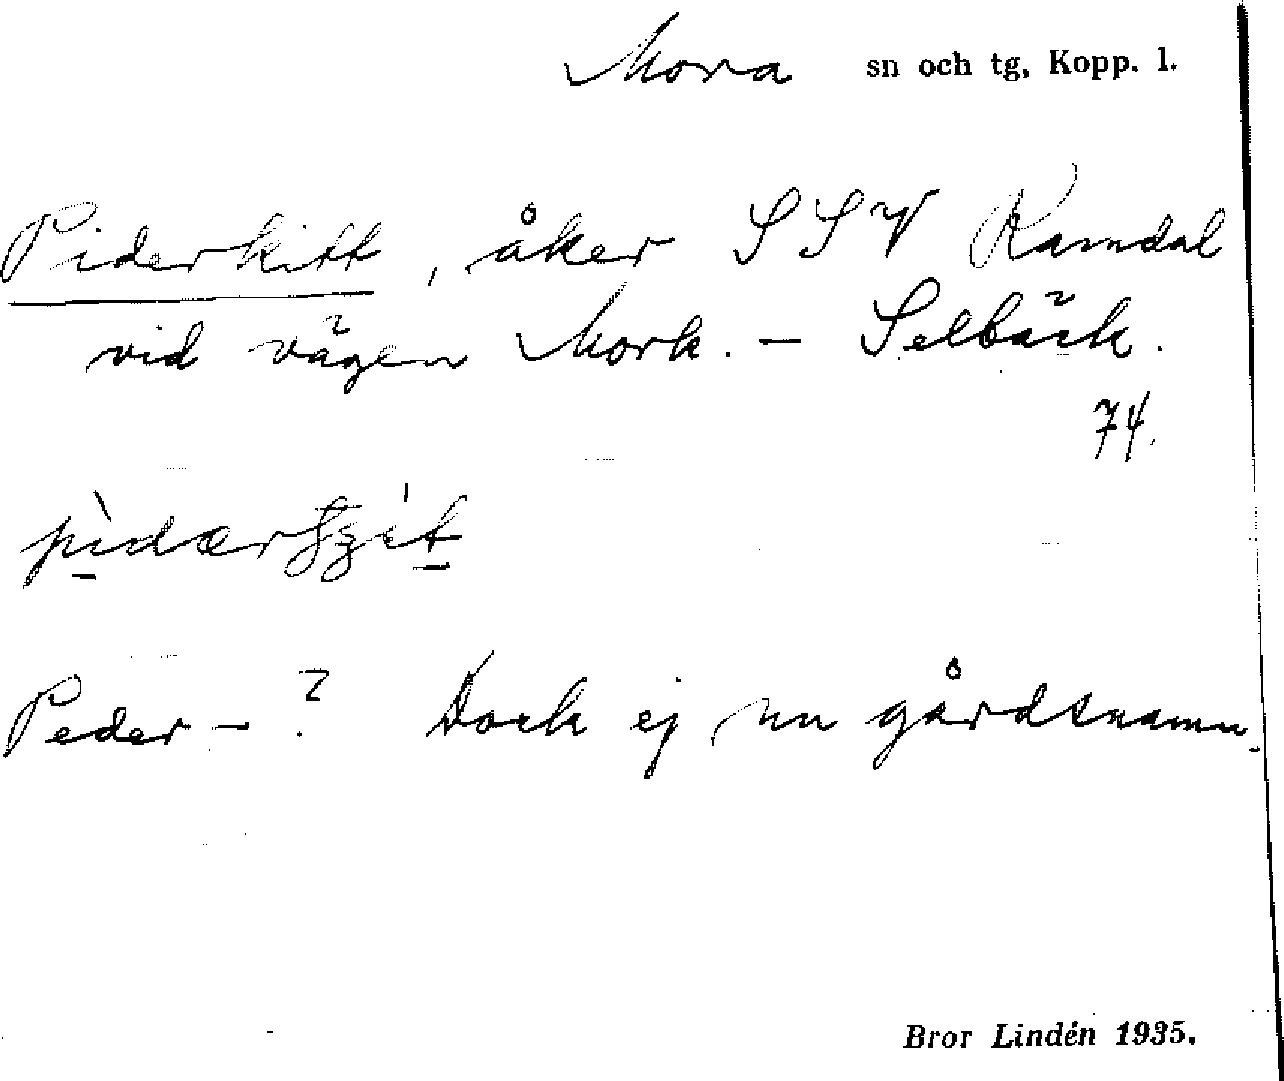 Mora sn och tg, Kopp. l.
Piderkitt, åker SSV Ramdal
vid vägen Mork. – Selbäck.
74.
Peder – ? Dock ej nu gårdsnamn.
Bror Lindén 1935.